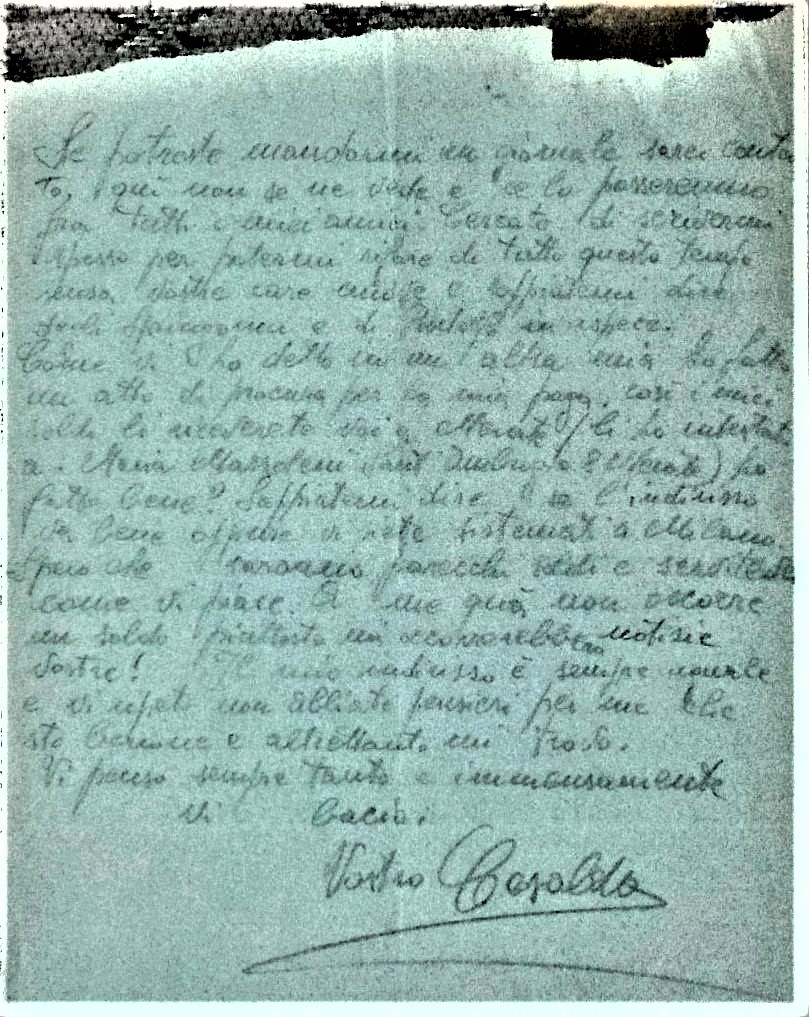 Se potreste mandarmi un giornale sarei conten
to, qui non se ne vede e ce lo passeremmo
fra tutti i miei amici. Cercate di scrivermi
spesso per potermi rifare di tutto questo tempo
senza vostre care e sappiatemi dire
degli e di in specie.
Come vi ho detto in un'altra mia ho fatto
un atto di procura per la mia paga, così i miei
soldi li riceverete voi a Merate (li ho intestati
a Maria Sant'Ambrogio Merate) ho
fatto bene? Sappiatemi dire se l'indirizzo
va bene oppure vi siete sistemati a Milano
Spero che saranno parecchi soldi e
come vi piace. A me quà non occorre
un soldo piuttosto mi occorrerebbero notizie
Vostre! Il mio indirizzo è sempre
e vi ripeto non abbiate pensieri per me che
sto benone e altrettanto mi trovo.
Vi penso sempre tanto e immensamente
vi bacio.
Vostro